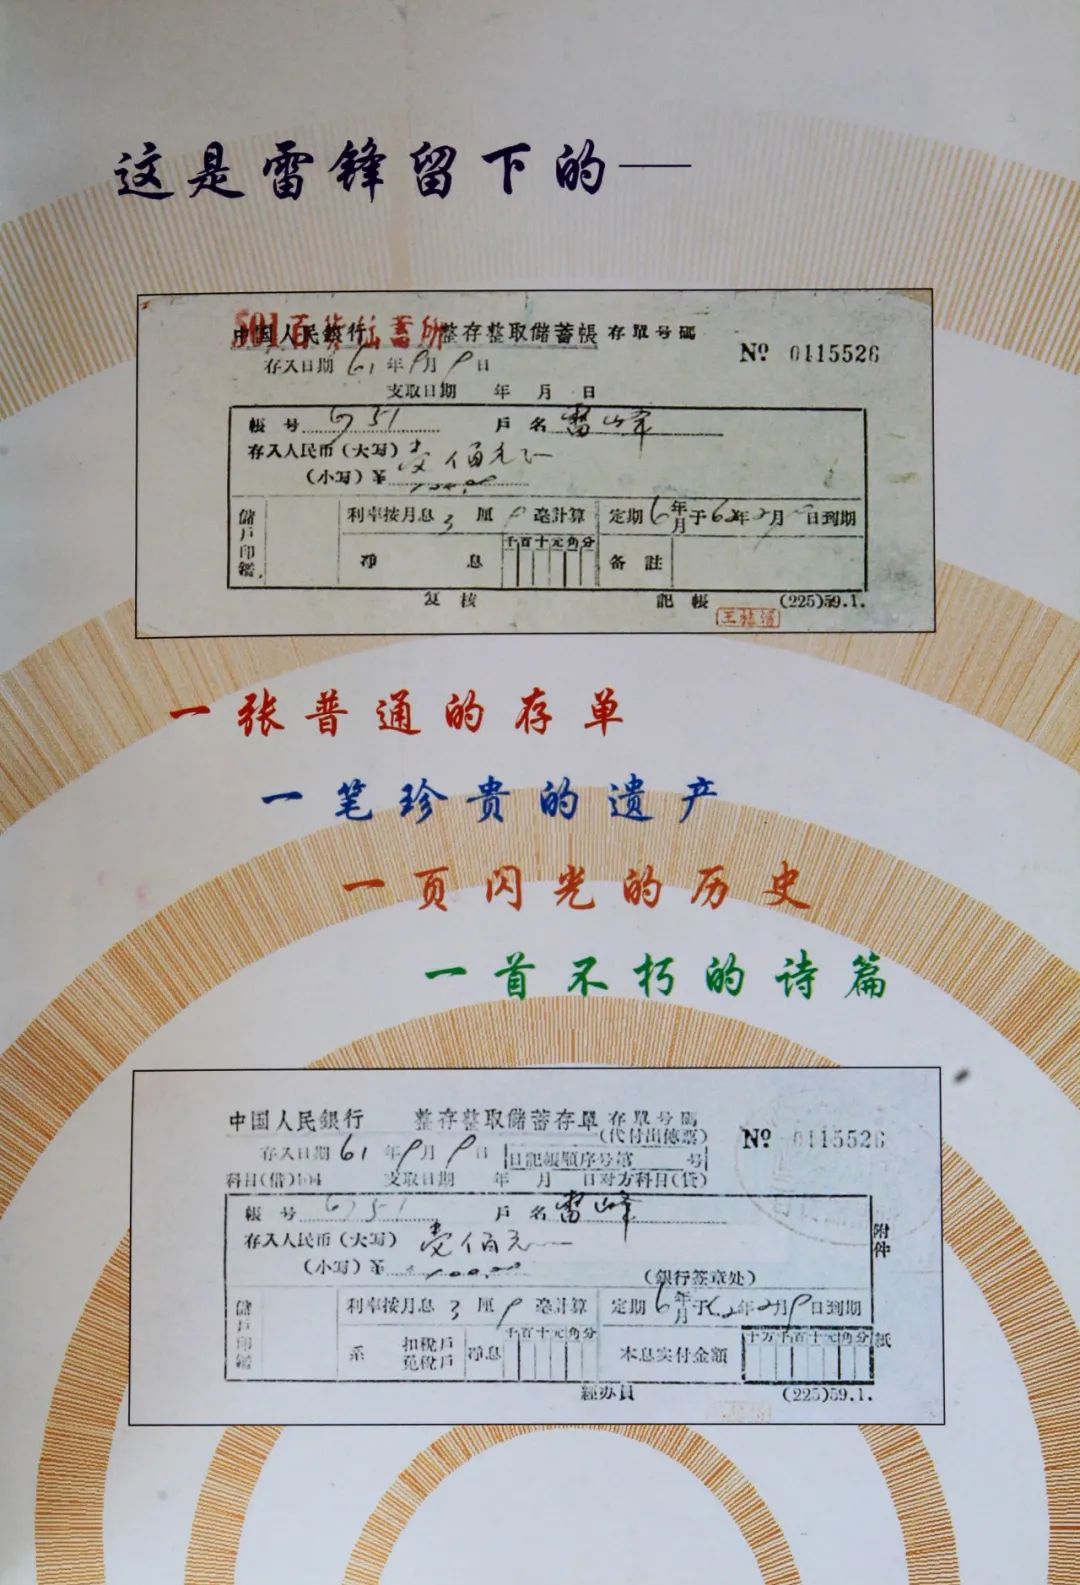 这是雷锋留下的——
501百货储蓄所
中国人民銀行 整存整取儲蓄帳 存單号碼
№ 0115526
存入日期 61年9月9日
支取日期 年 月 日
帳 号 戶 名 雷峰
存入人民币（大写） 壹佰元
（小写）¥ 100.00
儲戶印鑑
利率按月息 3 厘 9 毫計算 定期 6 年月于 62年3月9日到期
千百十元角分
净 息 备 註
复 核 記 帳 (225)59.1.
一张普通的存单
一笔珍贵的遗产
一页闪光的历史
一首不朽的诗篇
中国人民銀行 整存整取儲蓄存單 存單号碼
(代付出傳票)
№ 0115526
存入日期 61年9月9日 日記帳順序号第 号
科目(借)104 支取日期 年 月 日对方科目(貸)
帳 号 戶 名 雷峰
存入人民币（大写） 壹佰元
（小写）¥ 100.00
(銀行签章处)
附件 紙
儲戶印鑑
利率按月息 3 厘 9 毫計算 定期 6 年月于62年3月9日到期
千百十元角分 十万千百十元角分
系 扣稅戶 免稅戶 净息 本息实付金額
經办員 (225)59.1.